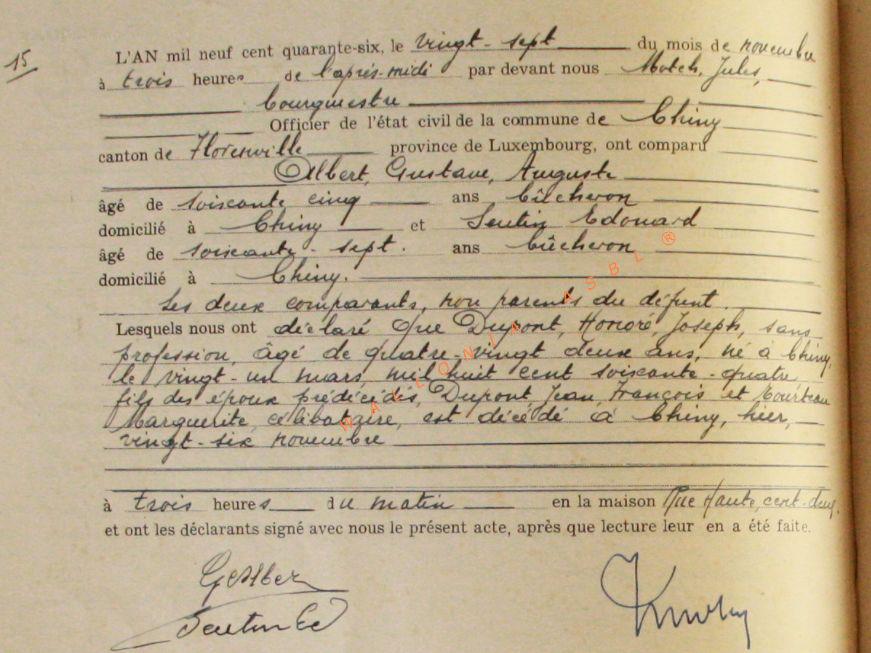 15
L'AN mil neuf cent quarante-six, le vingt-sept du mois de novembre
à trois heures de l'après-midi par devant nous Motch, Jules,
bourgmestre
Officier de l'état civil de la commune de Chiny
canton de Florenville province de Luxembourg, ont comparu
Albert, Gustave, Auguste
âgé de soixante cinq ans bûcheron
domicilié à Chiny et Sentin Edouard
âgé de soixante-sept. ans bûcheron
domicilié à Chiny.
Les deux comparants, non parents du défunt.
Lesquels nous ont déclaré que Dupont, Honoré, Joseph, sans
profession, âgé de quatre-vingt deux ans, né à Chiny,
le vingt-un mars, mil huit cent soixante-quatre
fils des époux prédécédés, Dupont, Jean, François et
Marguerite, célibataire, est décédé à Chiny, hier,
vingt-six novembre
à trois heures du matin en la maison Rue Haute, cent-deux,
et ont les déclarants signé avec nous le présent acte, après que lecture leur en a été faite.